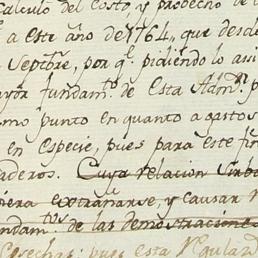 Calculo del Costo y prodecho de
a este año de 1764, que desde
Septbre, por qe pidiendo lo asi
fundamto de esta Admon
mo punto en quanto a gastos
en especie, pues para este fin
aderos. Cuya relacion sirba
extrañarse, y causar
undamtos de las demostracione
Cosechas; pues esta Regulad